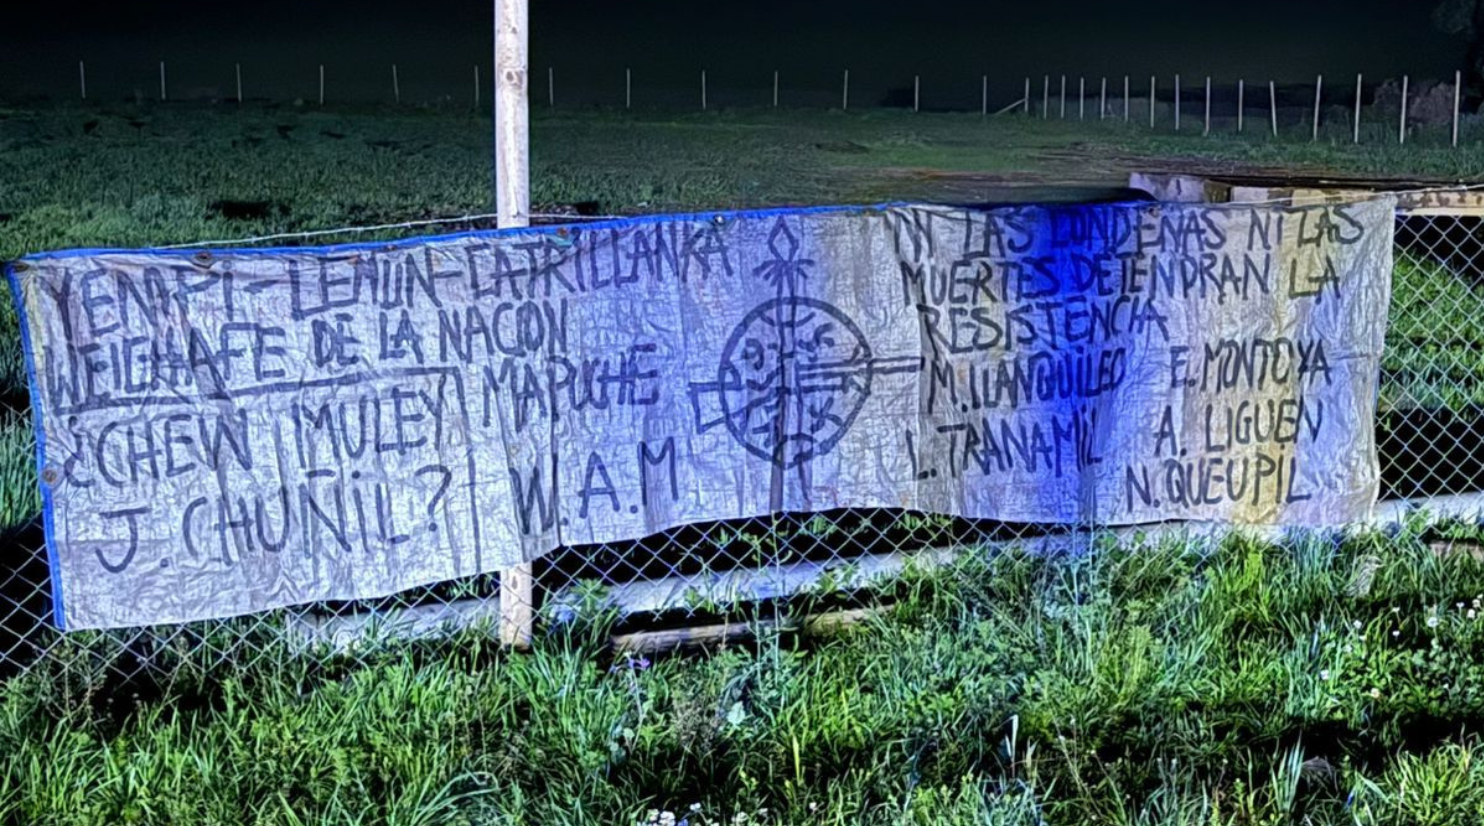 YENAPI - LEMUN - CATRILLANKA
WEICHAFE DE LA NACION
MAPUCHE
¿CHEW MULEY
J. CHUÑIL?
W.A.M
NI LAS CONDENAS NI LAS
MUERTES DETENDRAN LA
RESISTENCIA
M. LLANQUILEO E. MONTOYA
L. TRANAMIL A. LIGUEN
N. QUEUPIL